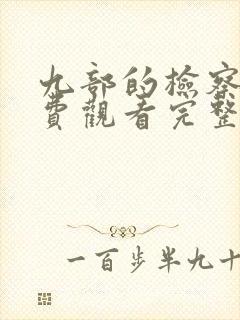 九部的檢察
費觀看完整
一百步半九十